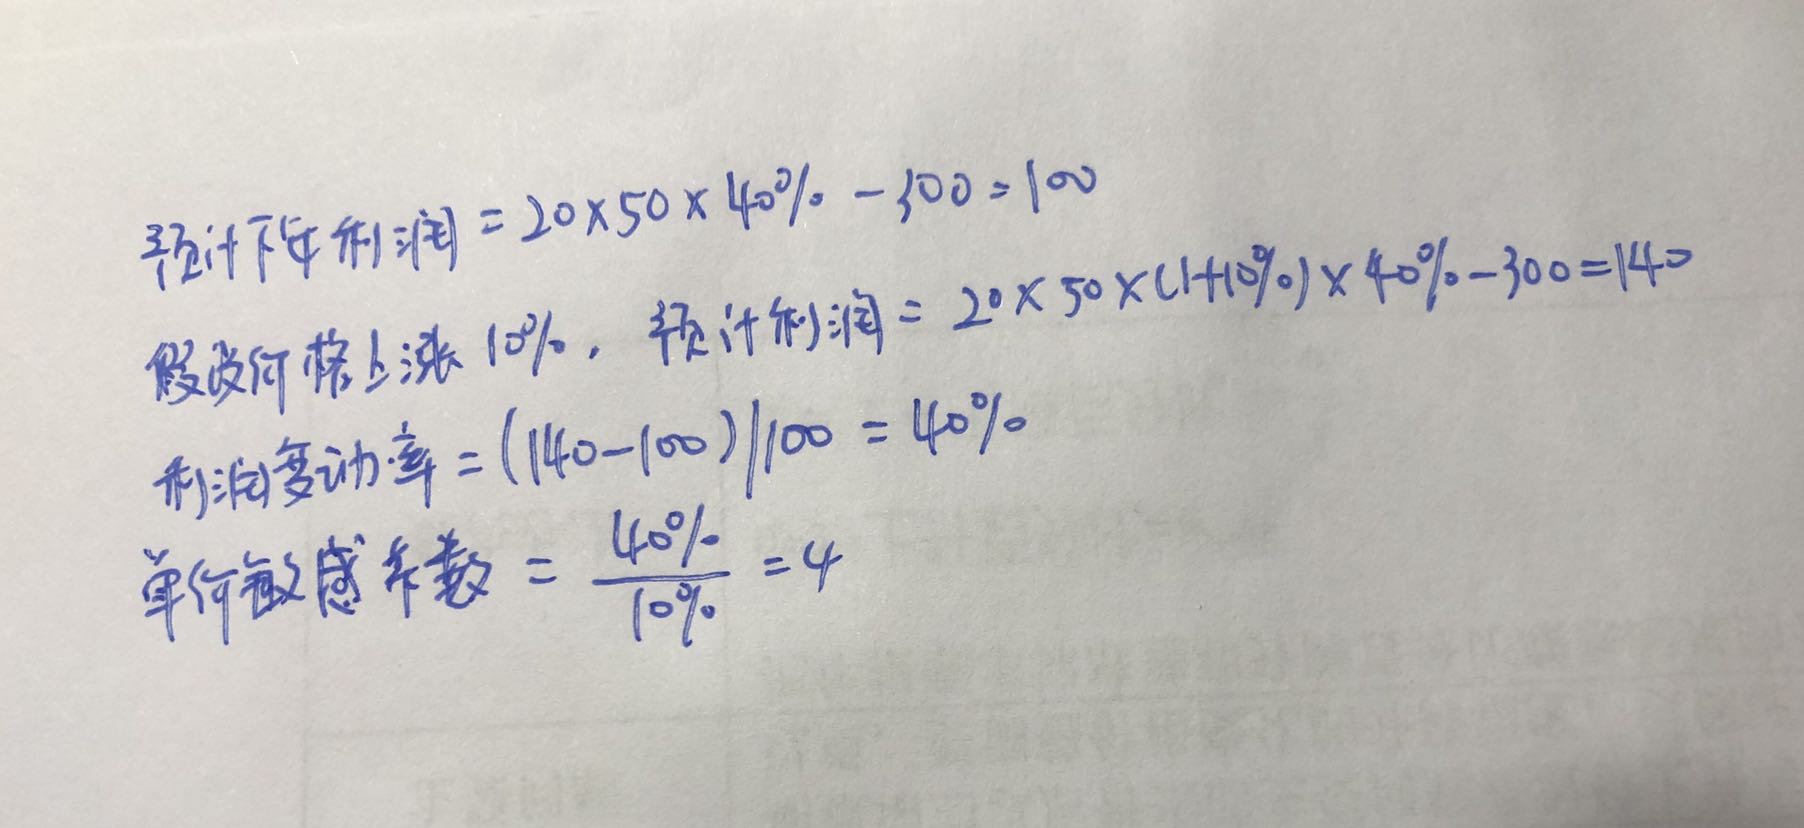 预计下年利润=20×50×40%-300=100
假设价格上涨10%,预计利润=20×50×(1+10%)×40%-300=140
利润变动率=(140-100)/100=40%
单价敏感系数=40%/10%=4